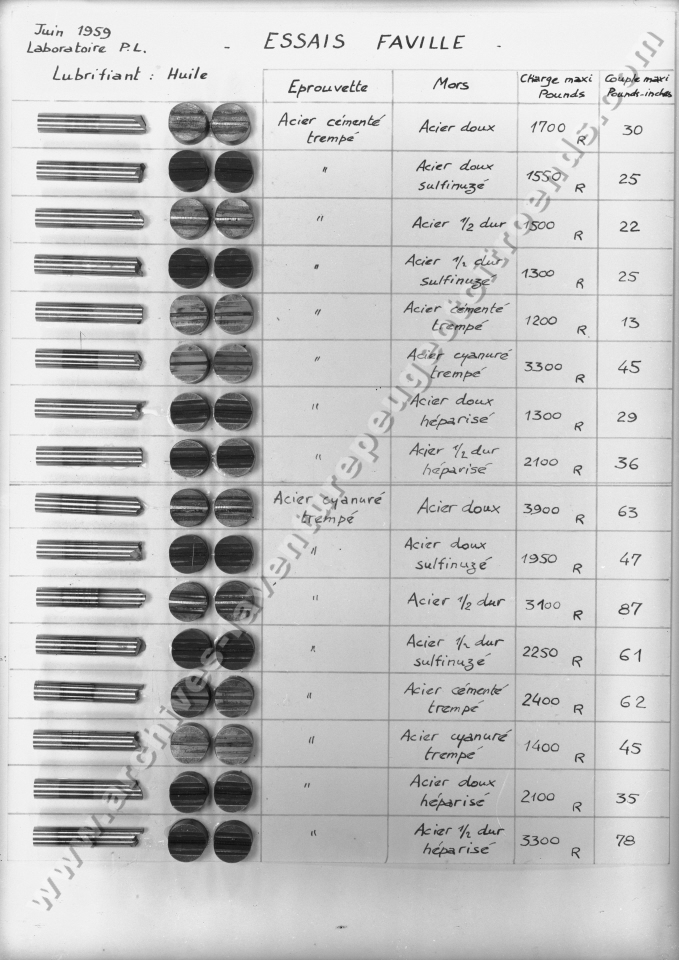 Juin 1959
Laboratoire P.L.
- ESSAIS FAVILLE -
Lubrifiant : Huile
Eprouvette Mors Charge maxi Pounds Couple maxi Pounds-inches
Acier cémenté trempé Acier doux 1700 R 30
" Acier doux sulfinuzé 1550 R 25
" Acier 1/2 dur 1500 R 22
" Acier 1/2 dur sulfinuzé 1300 R 25
" Acier cémenté trempé 1200 R 13
" Acier cyanuré trempé 3300 R 45
" Acier doux héparisé 1300 R 29
" Acier 1/2 dur héparisé 2100 R 36
Acier cyanuré trempé Acier doux 3900 R 63
" Acier doux sulfinuzé 1950 R 47
" Acier 1/2 dur 3100 R 87
" Acier 1/2 dur sulfinuzé 2250 R 61
" Acier cémenté trempé 2400 R 62
" Acier cyanuré trempé 1400 R 45
" Acier doux héparisé 2100 R 35
" Acier 1/2 dur héparisé 3300 R 78
www.archives-laventurepeugeotcitroends.com